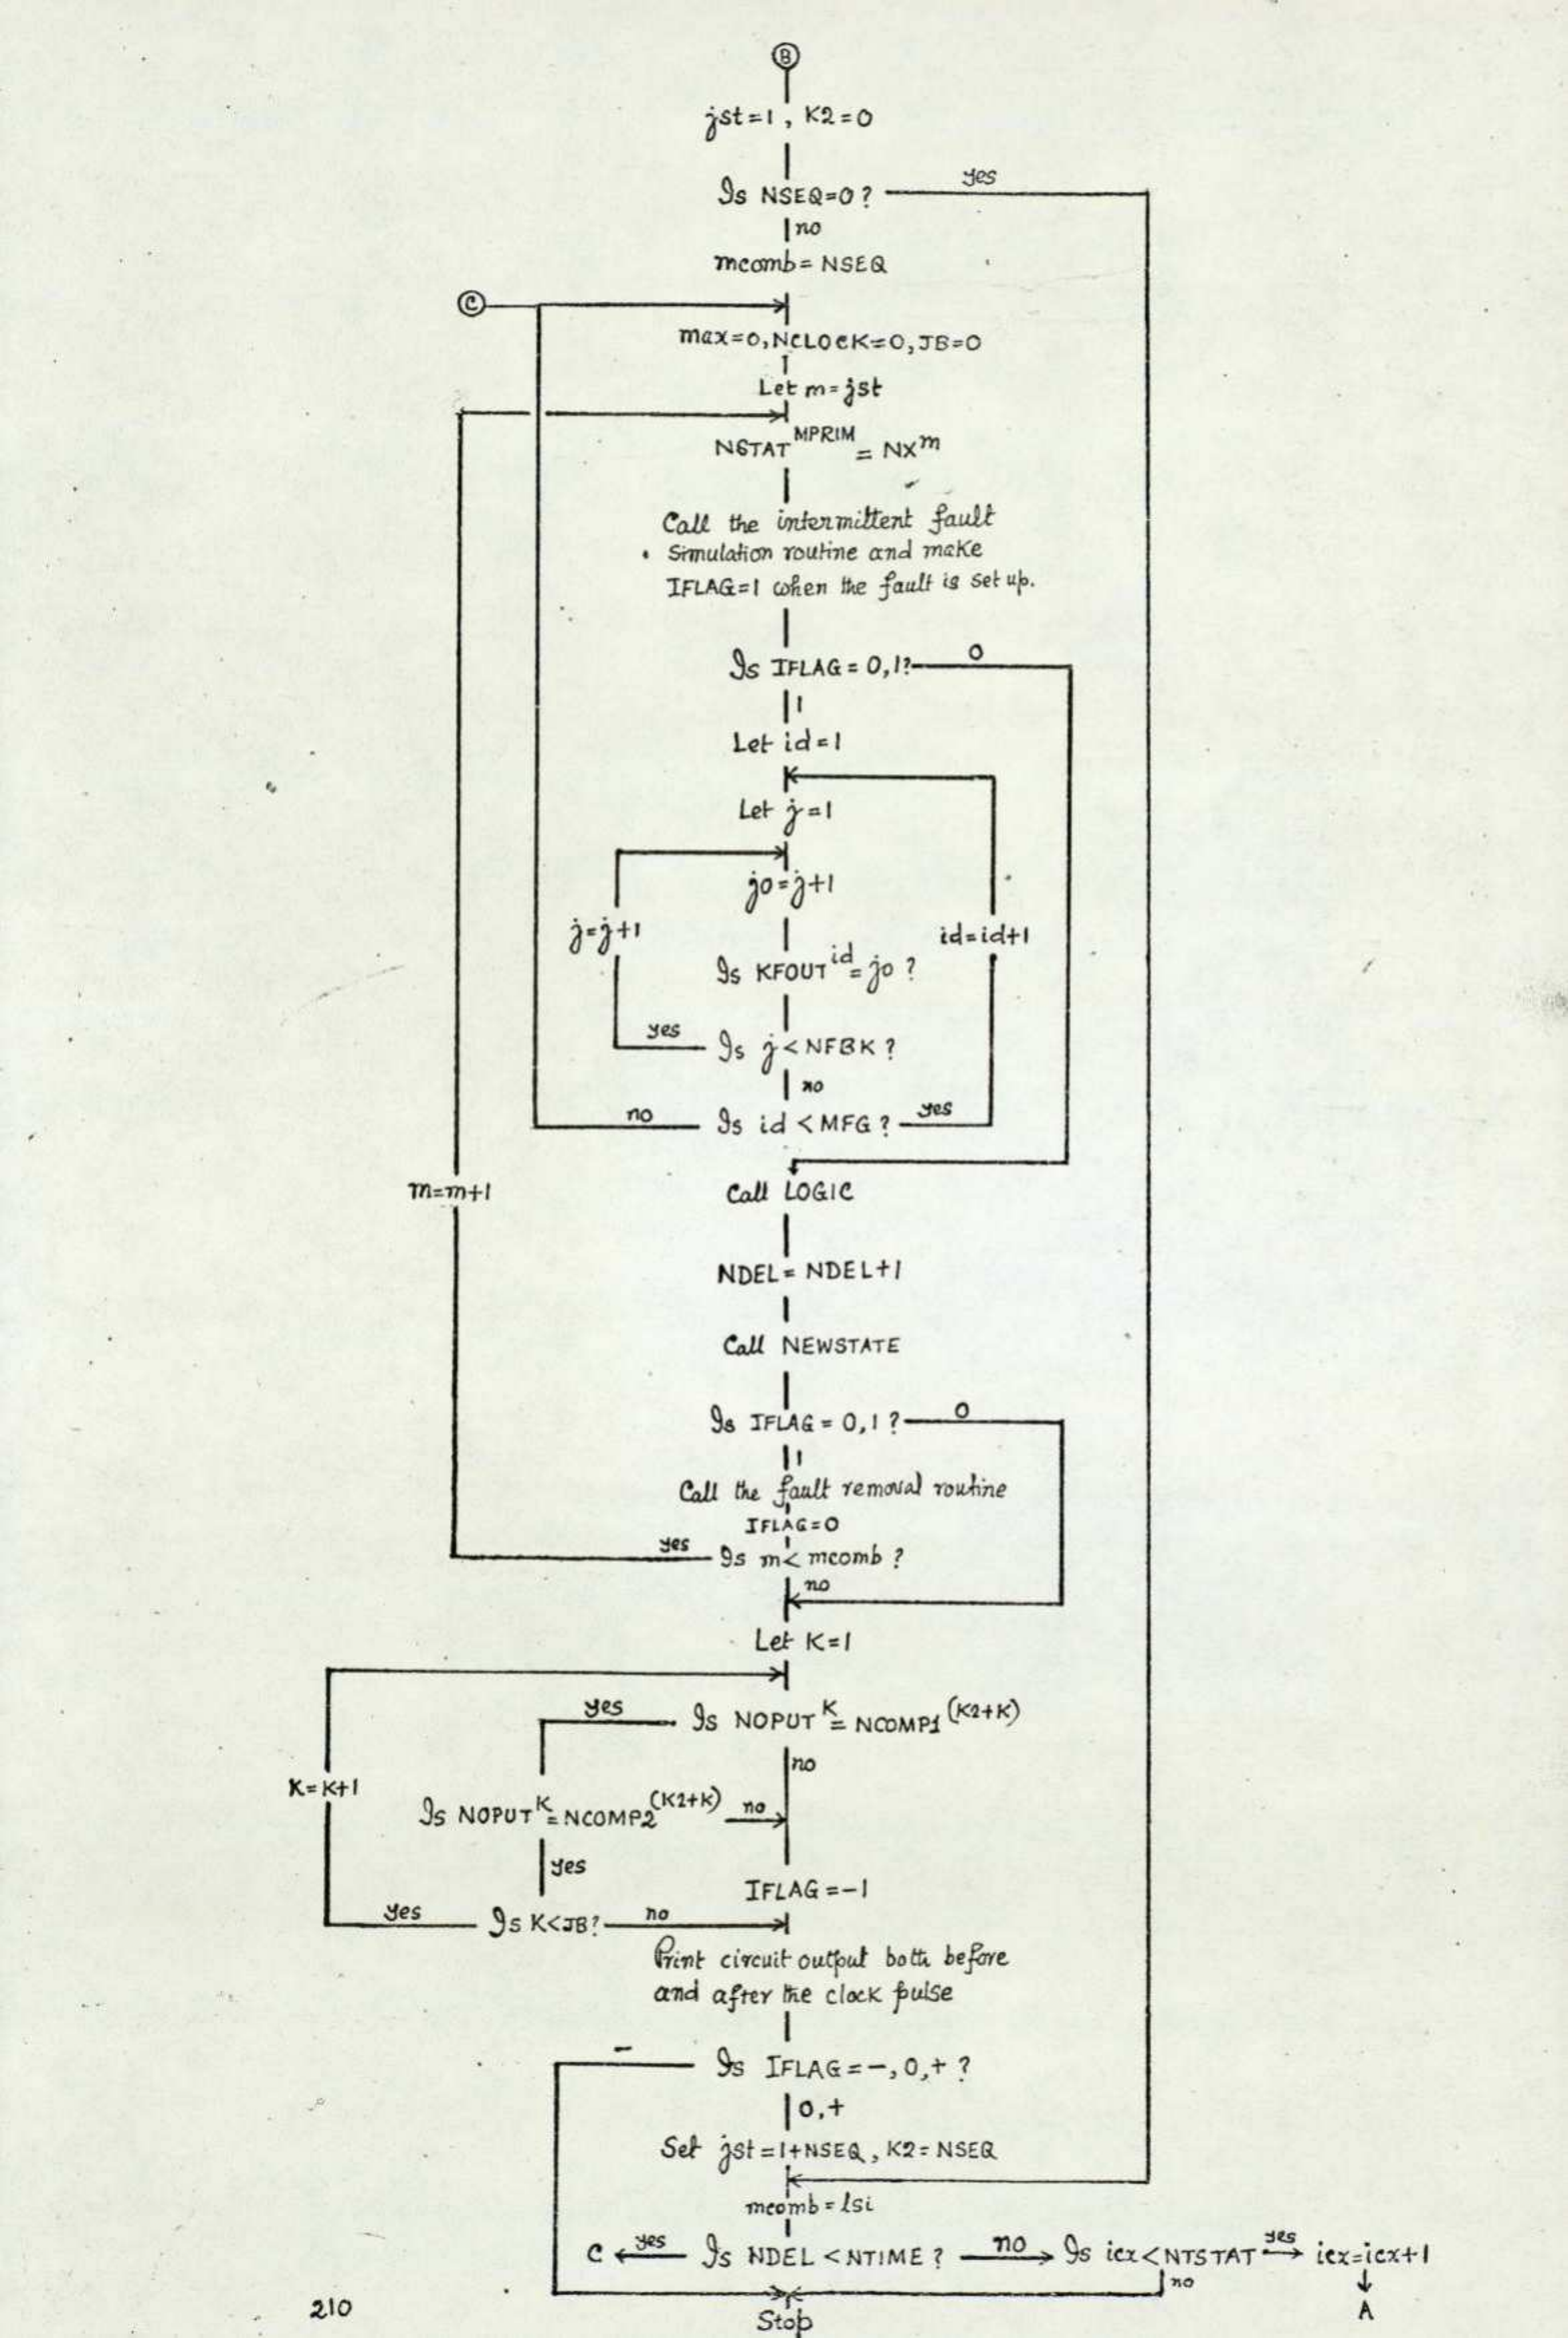 B
jst=1, K2=0
Is NSEQ=0? yes
no
mcomb=NSEQ
C
max=0, NCLOCK=0, JB=0
Let m=jst
NSTAT^MPRIM = NX^m
Call the intermittent fault
Simulation routine and make
IFLAG=1 when the fault is set up.
Is IFLAG=0,1? 0
1
Let id=1
Let j=1
jo=j+1
j=j+1
id=id+1
Is KFOUT^id=jo ?
yes Is j<NFBK ?
no
no Is id<MFG? yes
m=m+1
Call LOGIC
NDEL=NDEL+1
Call NEWSTATE
Is IFLAG=0,1? 0
1
Call the fault removal routine
IFLAG=0
yes Is m<mcomb ?
no
Let K=1
yes Is NOPUT^K=NCOMP1^(K2+K)
no
K=K+1
Is NOPUT^K=NCOMP2^(K2+K) no
yes
IFLAG=-1
yes Is K<JB? no
Print circuit output both before
and after the clock pulse
- Is IFLAG=-,0,+ ?
0,+
Set jst=1+NSEQ, K2=NSEQ
mcomb=lsi
C yes Is NDEL<NTIME? no Is icx<NTSTAT yes icx=icx+1
no
A
Stop
210